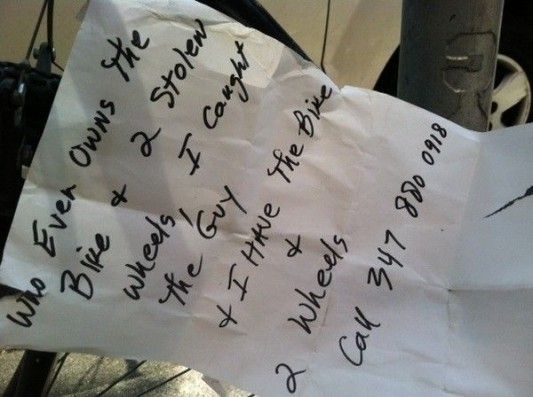 Who Even Owns the
Bike & 2 Stolen
Wheels, I Caught
the Guy
& I Have The Bike
&
2 Wheels
Call 347 880 0918